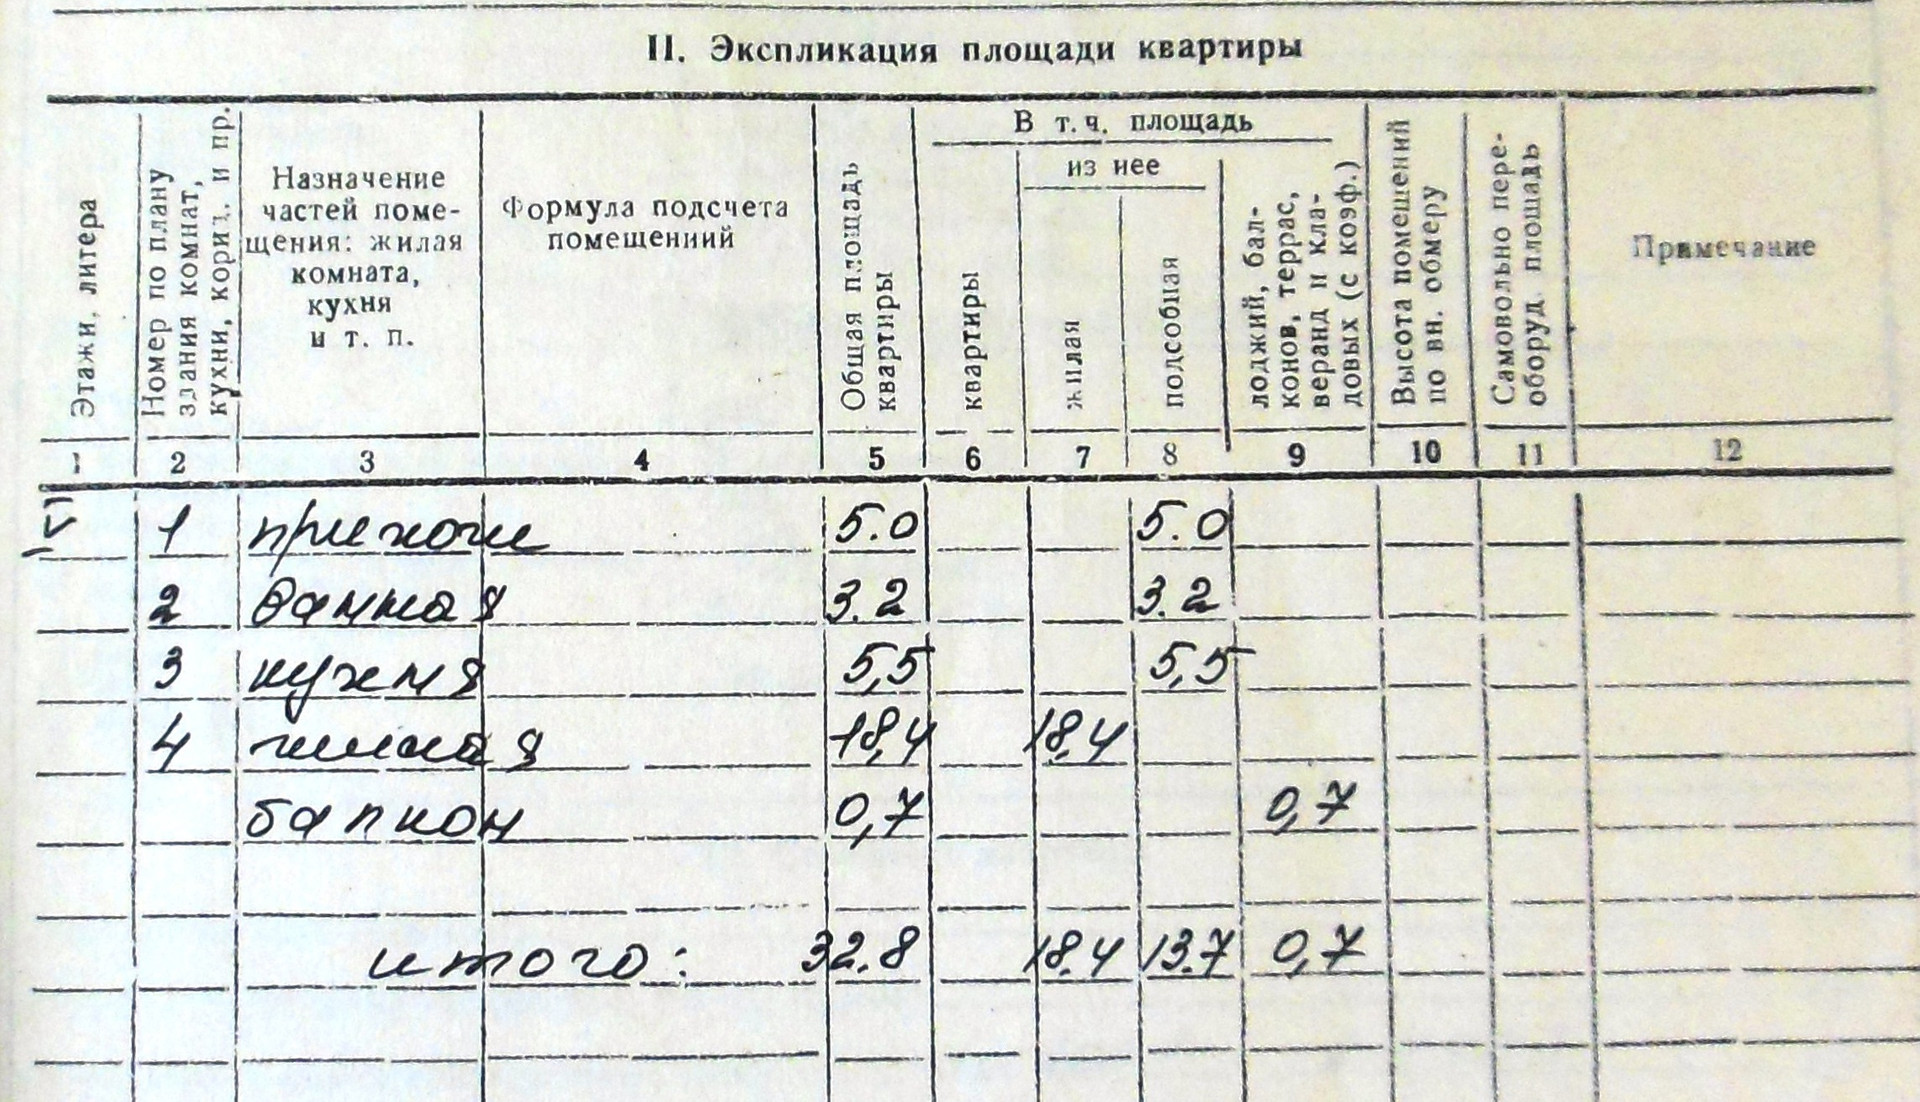 II. Экспликация площади квартиры
Этажи, литера
Номер по плану здания комнат, кухни, корид. и пр.
Назначение частей поме-
щения: жилая
комната,
кухня
и т. п.
Формула подсчета
помещениий
Общая площадь квартиры
В т. ч. площадь
квартиры
из нее
жилая
подсобная
лоджий, бал-
конов, террас,
веранд и кла-
довых (с коэф.)
Высота помещений
по вн. обмеру
Самовольно пере-
оборуд. площадь
Примечание
1 2 3 4 5 6 7 8 9 10 11 12
IV 1 прихожие 5.0 5.0
2 ванная 3.2 3.2
3 кухня 5,5 5,5
4 жилая 18,4 18,4
балкон 0,7 0,7
итого: 32.8 18.4 13.7 0,7